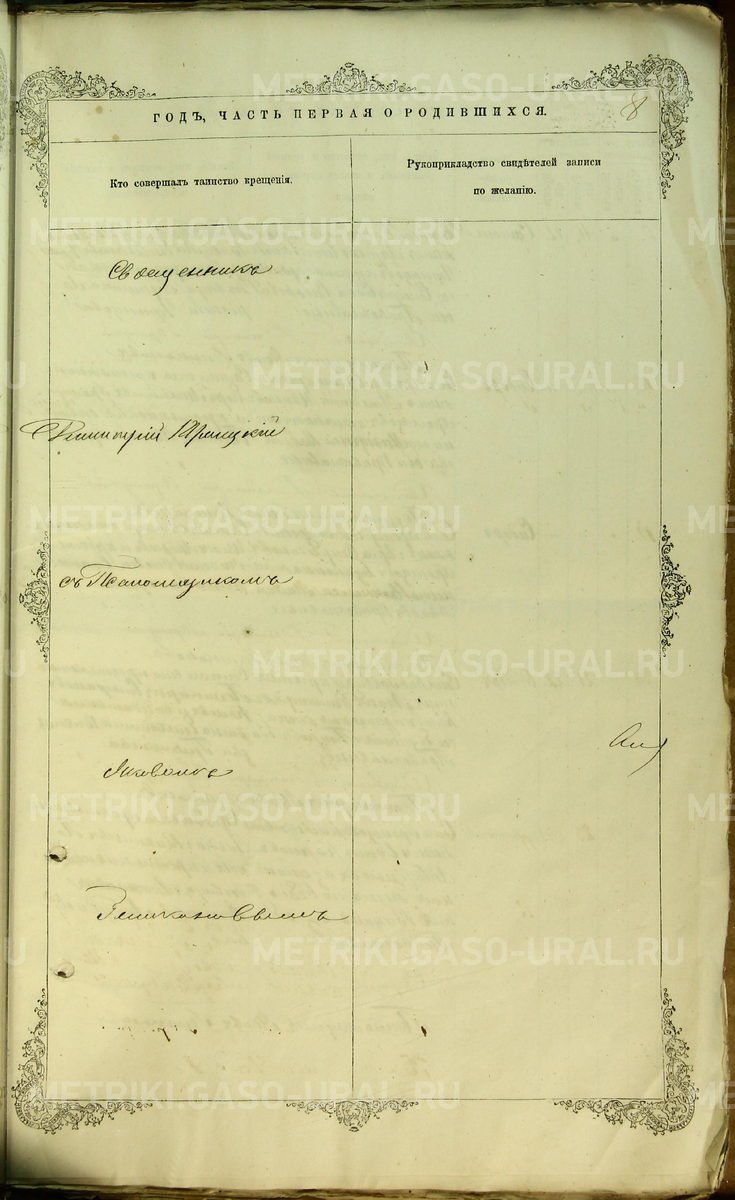 8
ГОДЪ, ЧАСТЬ ПЕРВАЯ О РОДИВШИХСЯ.
Кто совершалъ таинство крещенія.
Рукоприкладство свидѣтелей записи
по желанію.
Священникъ
Димитрій Троицкій
съ Псаломщикомъ
Яковомъ
METRIKI.GASO-URAL.RU